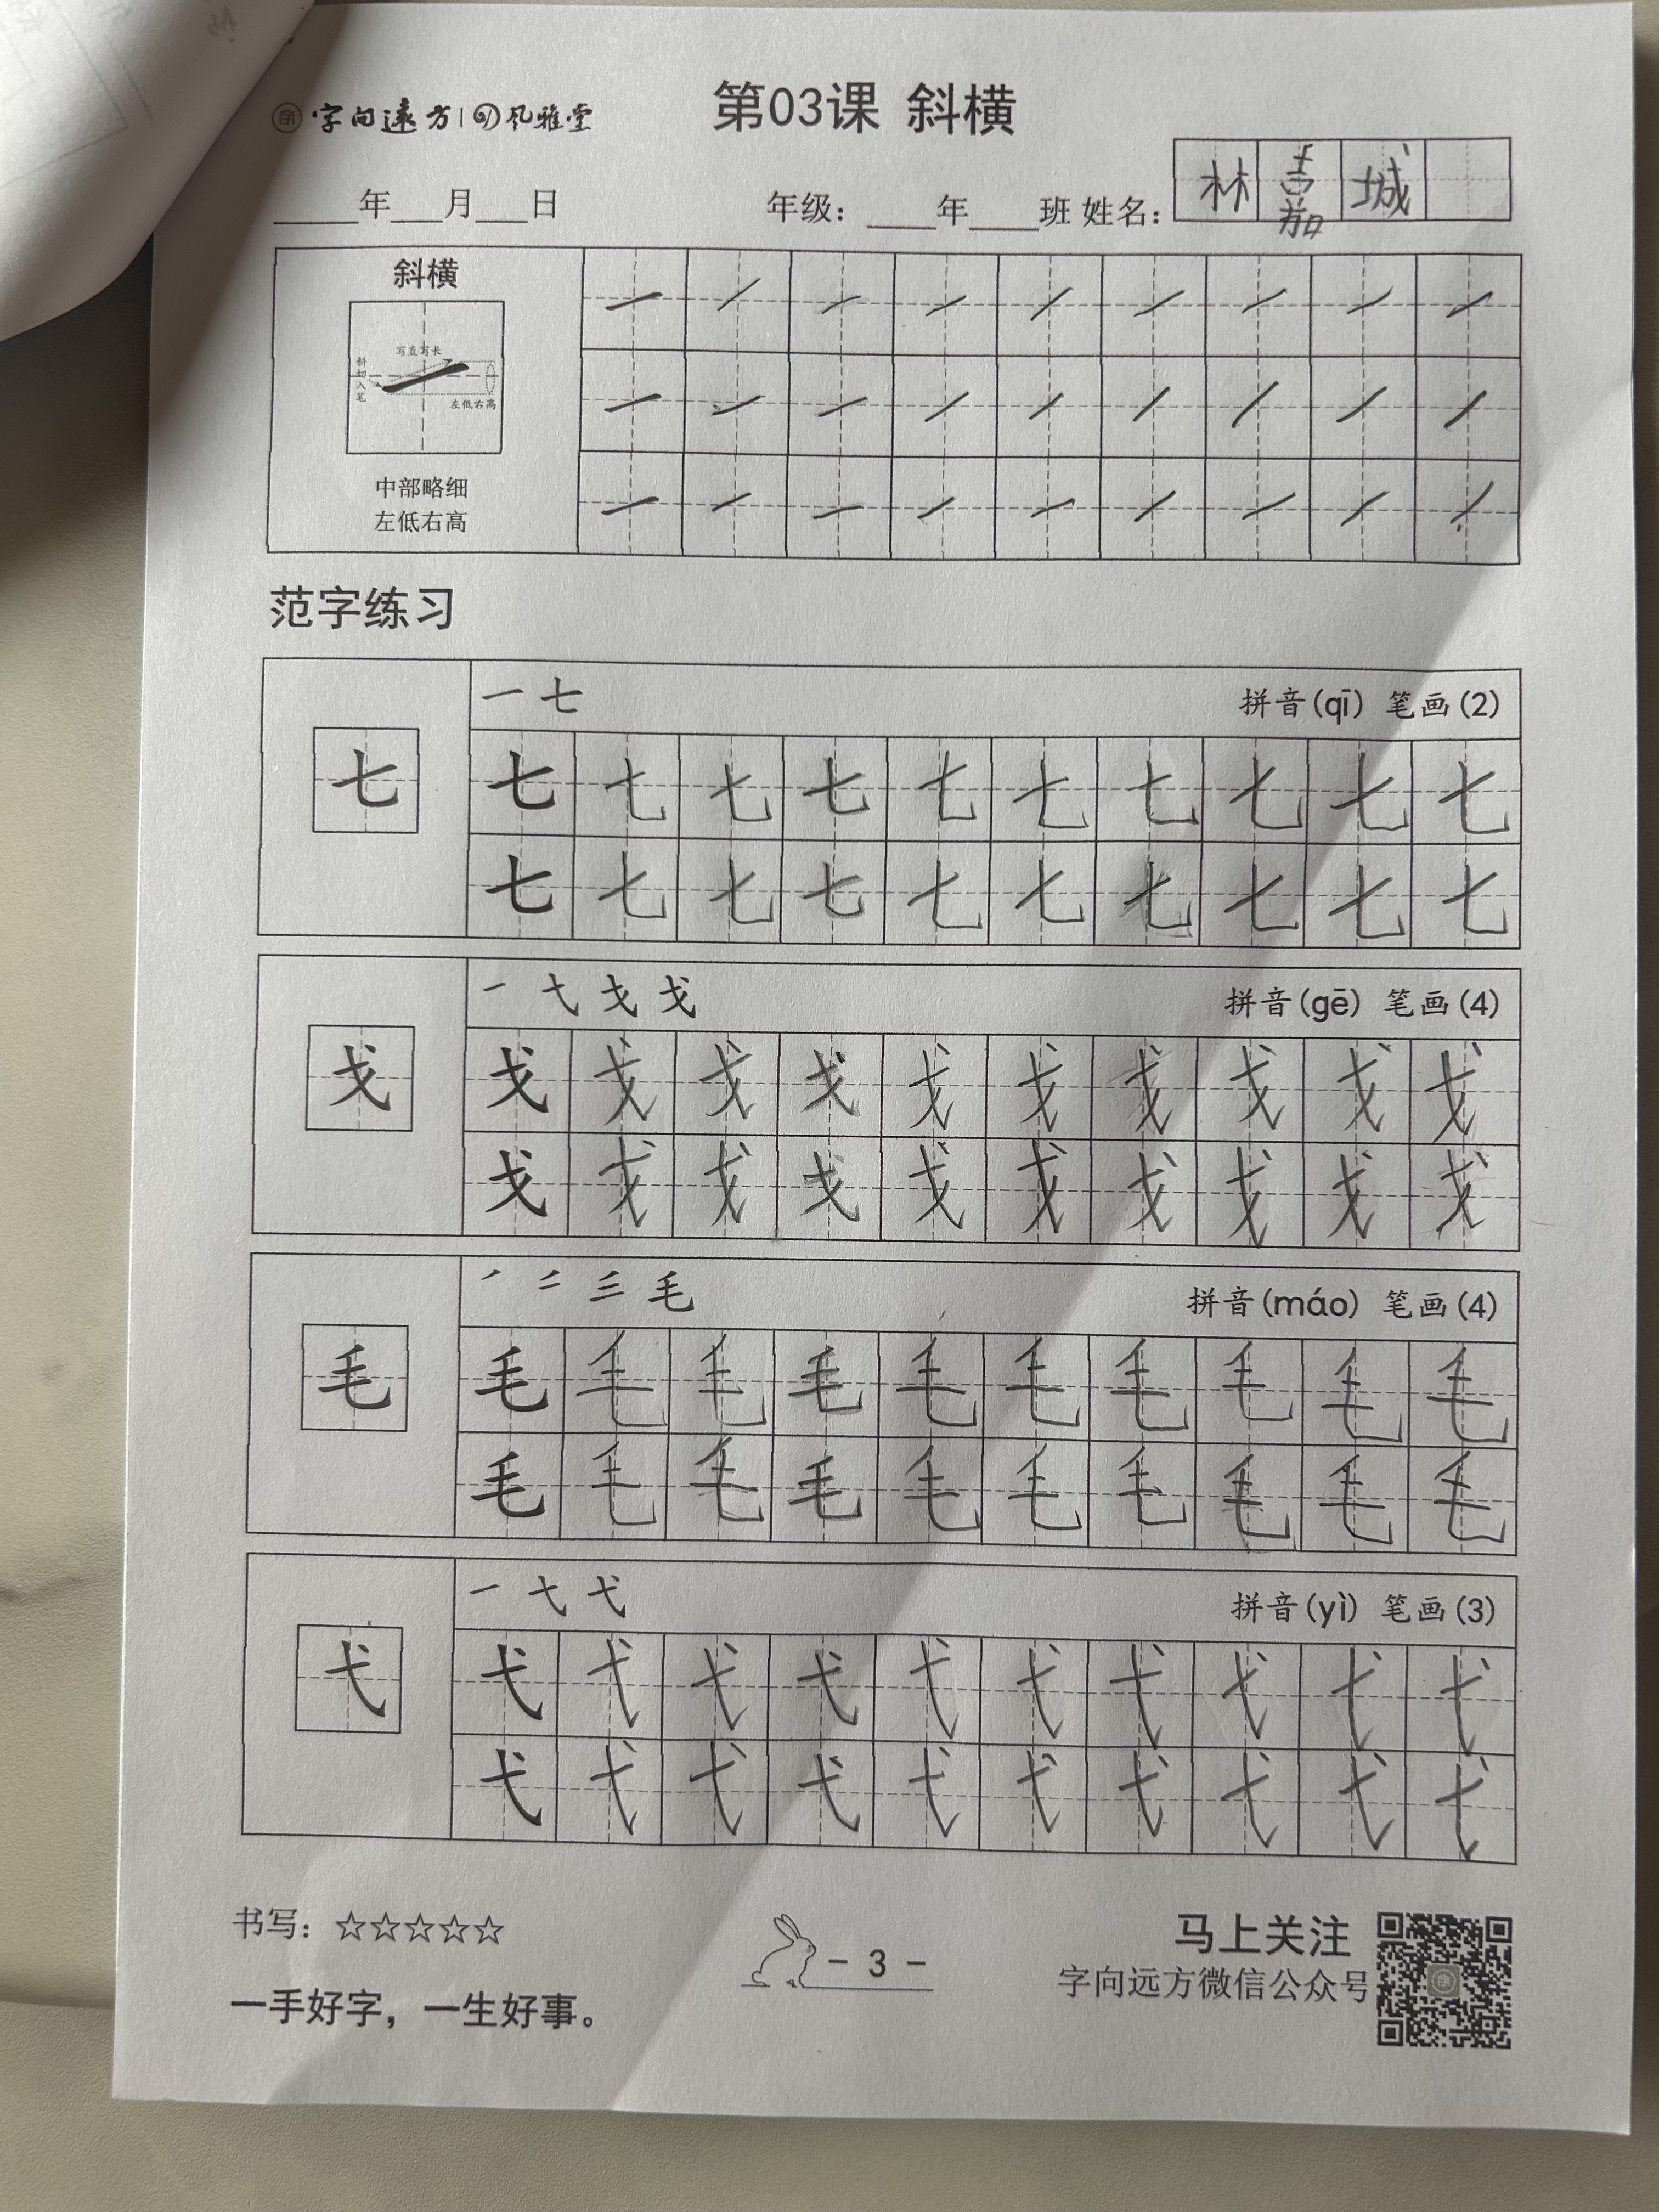 字向遠方 | 风雅堂
第03课 斜横
____年___月___日 年级：____年____班 姓名：林嘉城
斜横
写直写长
斜切入笔
左低右高
中部略细
左低右高
范字练习
一 七 拼音(qī) 笔画(2)
七 七 七 七 七 七 七 七 七 七 七
七 七 七 七 七 七 七 七 七 七
一 弋 戈 拼音(gē) 笔画(4)
戈 戈 戈 戈 戈 戈 戈 戈 戈 戈 戈
戈 戈 戈 戈 戈 戈 戈 戈 戈 戈
毛 拼音(máo) 笔画(4)
毛 毛 毛 毛 毛 毛 毛 毛 毛 毛 毛
毛 毛 毛 毛 毛 毛 毛 毛 毛 毛
一 七 弋 拼音(yì) 笔画(3)
弋 弋 弋 弋 弋 弋 弋 弋 弋 弋 弋
弋 弋 弋 弋 弋 弋 弋 弋 弋 弋
书写：☆☆☆☆☆
一手好字，一生好事。
- 3 -
马上关注
字向远方微信公众号